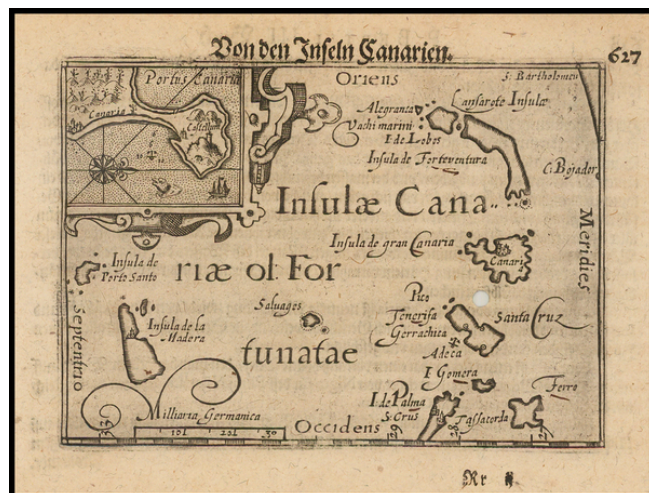 Von den Inseln Canarien.
627
Portus Canaria
Canaria
Castellum
Oriens
S. Bartholomeu
Alegranca
Lansarote Insulæ
Vachi marini
I de Lobos
Insula de Forteventura
C. Bojador
Insulæ Cana-
Meridies
Insula de gran Canaria
Canari
Insula de
Porto Santo
riæ ol: For
Salvages
Pico
Tenerifa
Gerrachica
Santa Cruz
Adeca
Septentrio
Insula de la
Madera
tunatae
I Gomera
Ferro
I de Palma
S: Crus
Tassacorda
Milliaria Germanica
10
20
30
Occidens
29
28
27
Rr